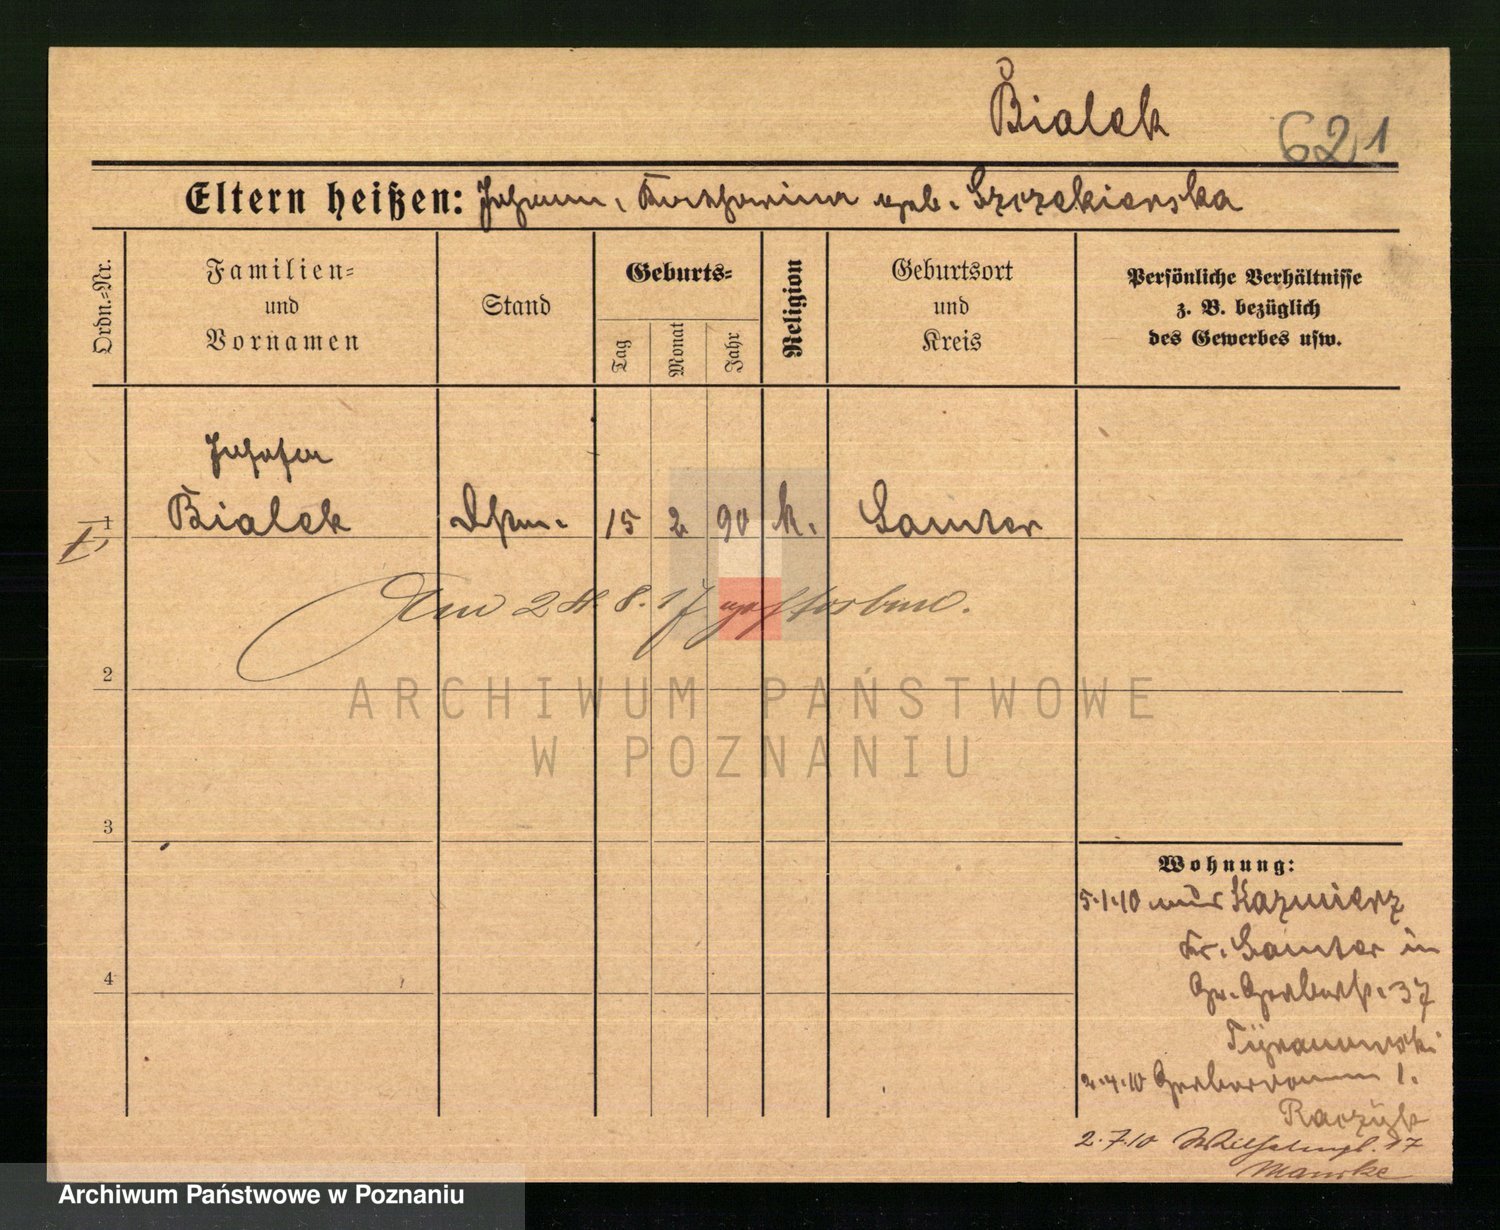 Bialek
621
Eltern heißen: Johann, Katharina geb. Szczekierska
Ordn.=Nr.
Familien=
und
Vornamen
Stand
Geburts=
Tag
Monat
Jahr
Religion
Geburtsort
und
Kreis
Persönliche Verhältnisse
z. B. bezüglich
des Gewerbes usw.
Josefa
1 Bialek 15 2 90 k. Samter
Am 24.8.17 gestorben.
2
ARCHIWUM PAŃSTWOWE
W POZNANIU
3
Wohnung:
5.1.10 aus Kazmierz
Kr. Samter in
Gr. Gerberstr. 37
4
2.4.10 Gerberdamm 1.
Raczyk
2.7.10 Wilhelmpl. 17
Manske
Archiwum Państwowe w Poznaniu